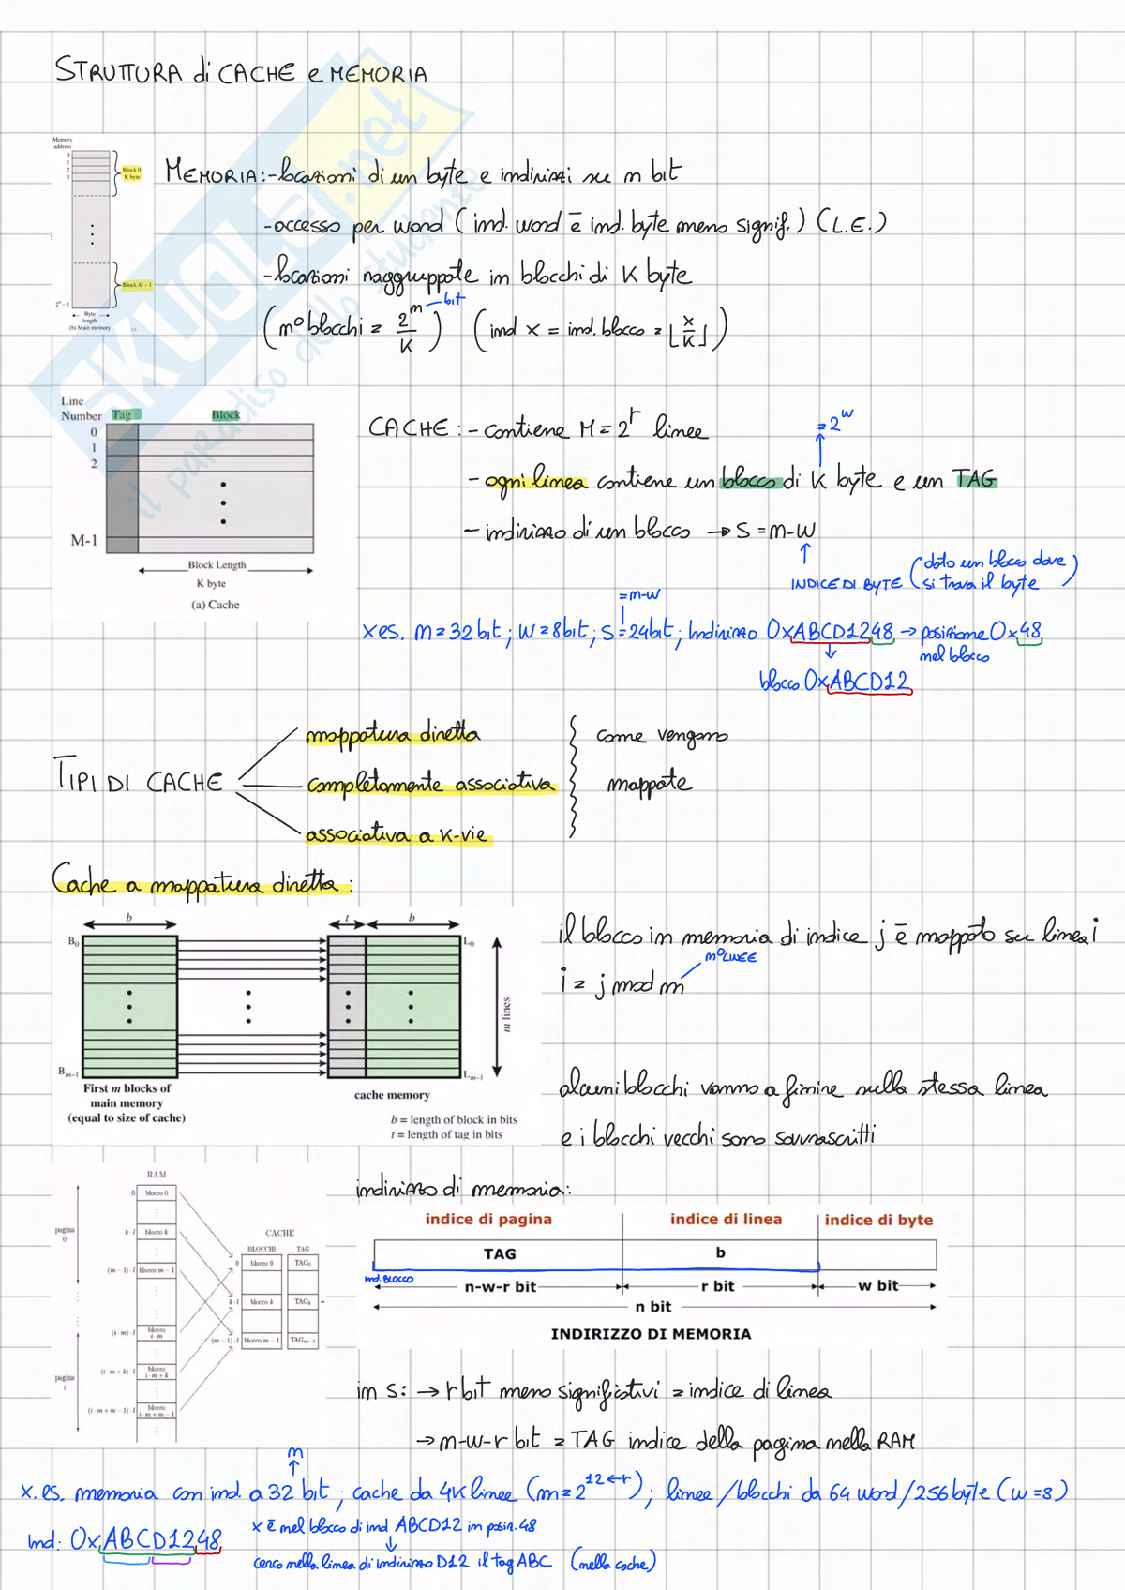 STRUTTURA di CACHE e MEMORIA
Memory address
0
1
2
3
Block 0
K byte
2ⁿ-1
Byte length
(b) Main memory
MEMORIA: -locazioni di un byte e indirizzi su n bit
-accesso per word (ind. word è ind. byte meno signif.) (L.E.)
-locazioni raggruppate in blocchi di K byte
(n° blocchi = 2ⁿ/K) (ind x = ind. blocco = ⌊x/K⌋)
bit
SKUOLA.net
il paradiso dello studente
Line Number
Tag
Block
0
1
2
M-1
Block Length
K byte
(a) Cache
CACHE: - contiene M = 2ʳ linee
= 2ʷ
- ogni linea contiene un blocco di K byte e un TAG
- indirizzo di un blocco → S = n-W
INDICE DI BYTE (dato un blocco dove si trova il byte)
=n-w
x es. n=32bit; W=8bit; S=24bit; Indirizzo 0xABCD1248 → posizione 0x48
nel blocco
blocco 0xABCD12
TIPI DI CACHE
mappatura diretta
completamente associativa
associativa a K-vie
come vengono
mappate
Cache a mappatura diretta:
b
t
b
B₀
L₀
m lines
Bₘ₋₁
Lₘ₋₁
First m blocks of
main memory
(equal to size of cache)
cache memory
b = length of block in bits
t = length of tag in bits
il blocco in memoria di indice j è mappato su linea i
i = j mod m
n° LINEE
alcuni blocchi vanno a finire nella stessa linea
e i blocchi vecchi sono sovrascritti
RAM
pagina 0
0
blocco 0
k·l
blocco k
(m-1)·l
blocco m-1
(i·m)·l
blocco i·m
(i·m+k)·l
blocco i·m+k
(i·m+m-1)·l
blocco i·m+m-1
pagina i
CACHE
BLOCCHI
TAG
0
blocco 0
TAG₀
k·l
blocco k
TAGₖ
(m-1)·l
blocco m-1
TAGₘ₋₁
indirizzo di memoria:
indice di pagina
indice di linea
indice di byte
TAG
b
ind. BLOCCO
n-w-r bit
r bit
w bit
n bit
INDIRIZZO DI MEMORIA
in S: → r bit meno significativi = indice di linea
→ n-w-r bit = TAG indice della pagina nella RAM
n
x. es. memoria con ind. a 32 bit; cache da 4K linee (m=2¹²←r); linee/blocchi da 64 word/256byte (w=8)
Ind: 0xABCD1248
x è nel blocco di ind ABCD12 in posiz. 48
cerco nella linea di indirizzo D12 il tag ABC (nella cache)